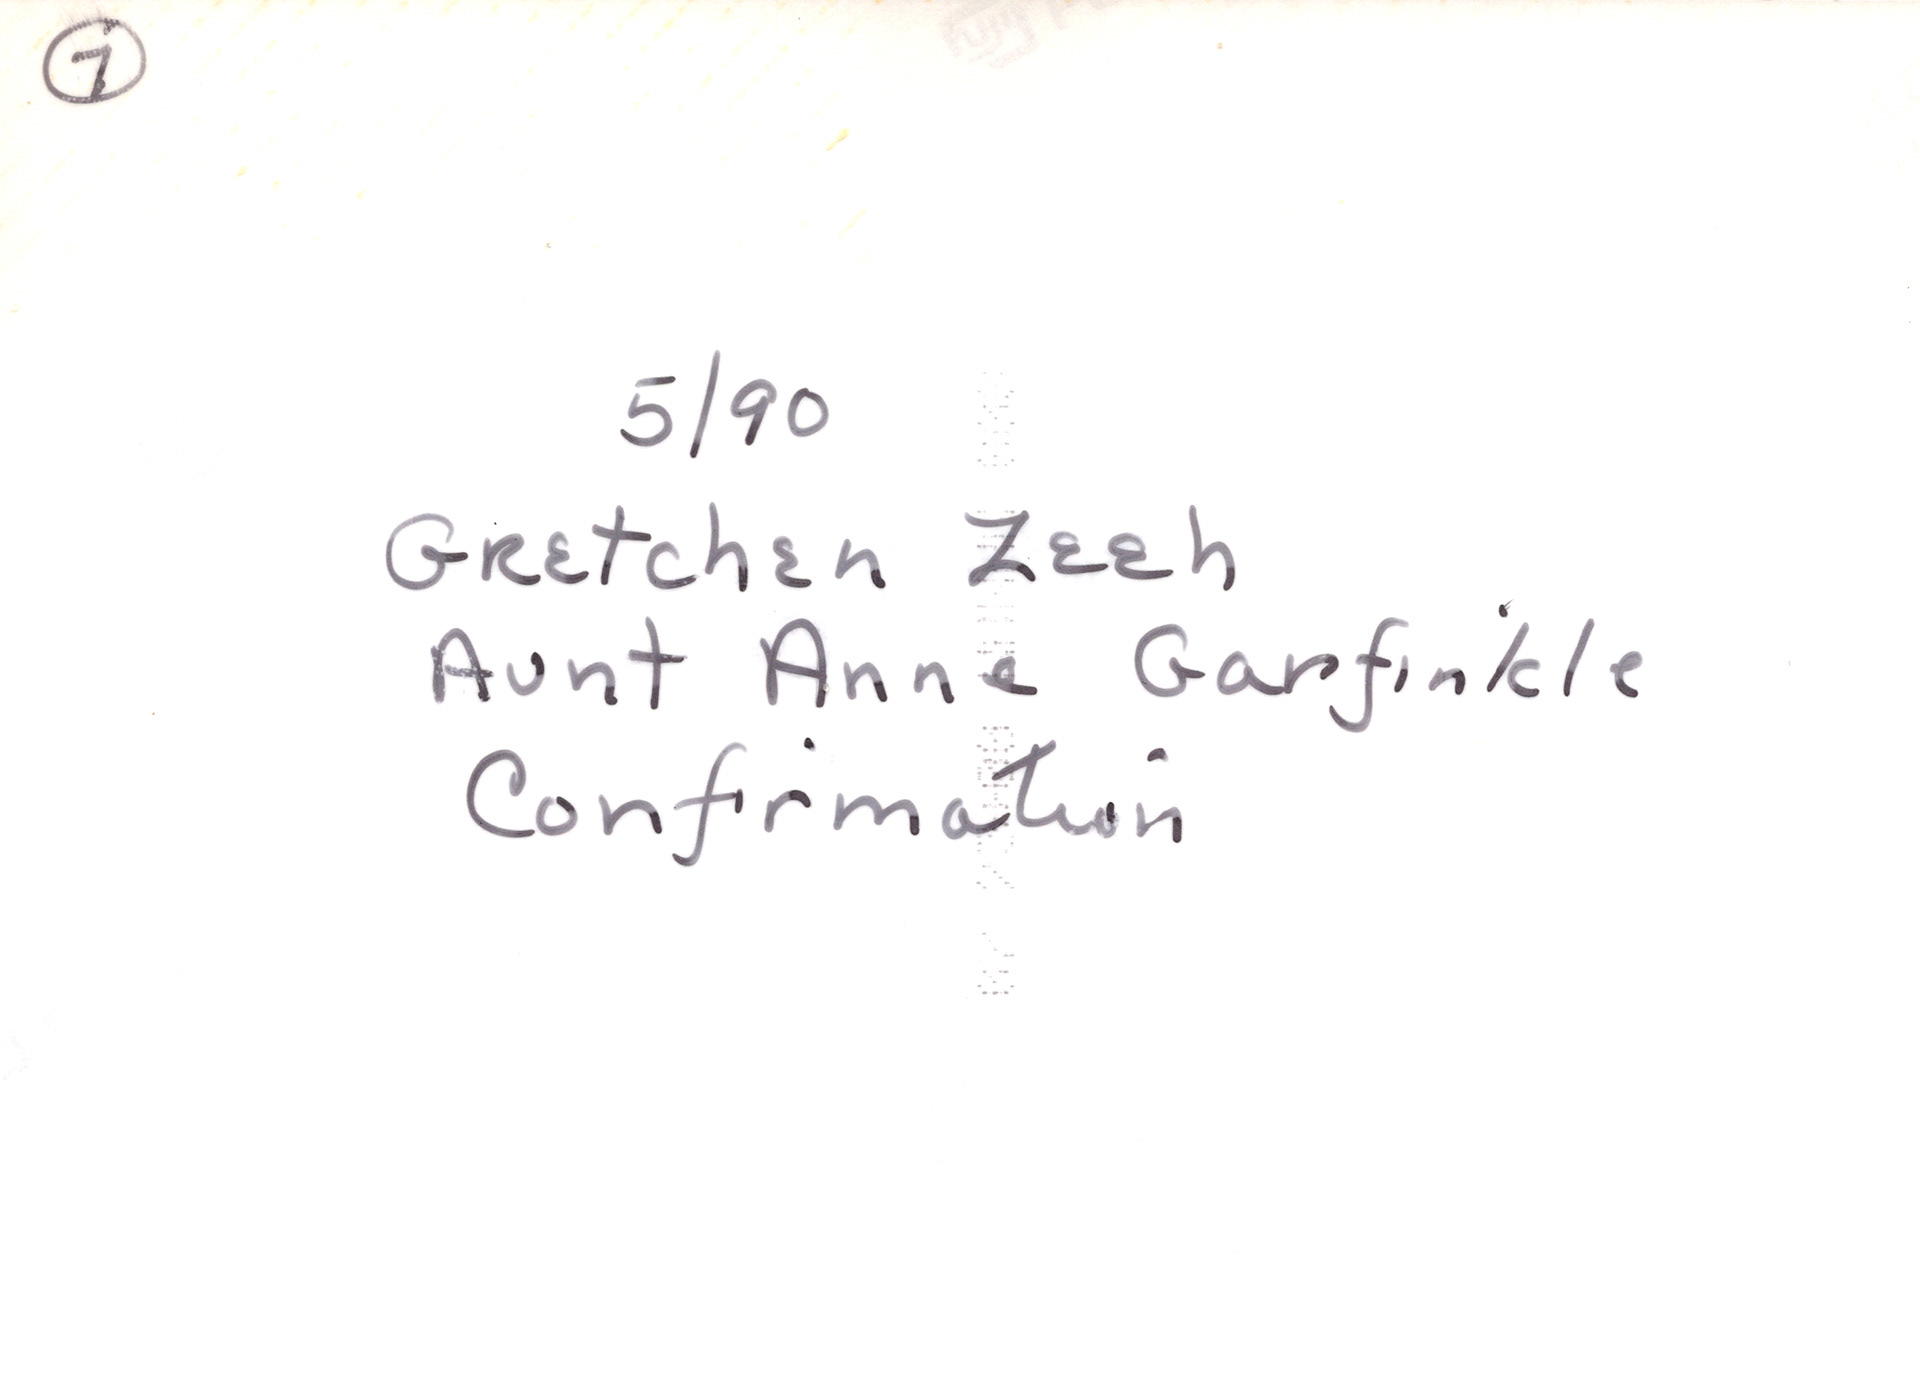 7
5/90
Gretchen Zeeh
Aunt Anne Garfinkle
Confirmation